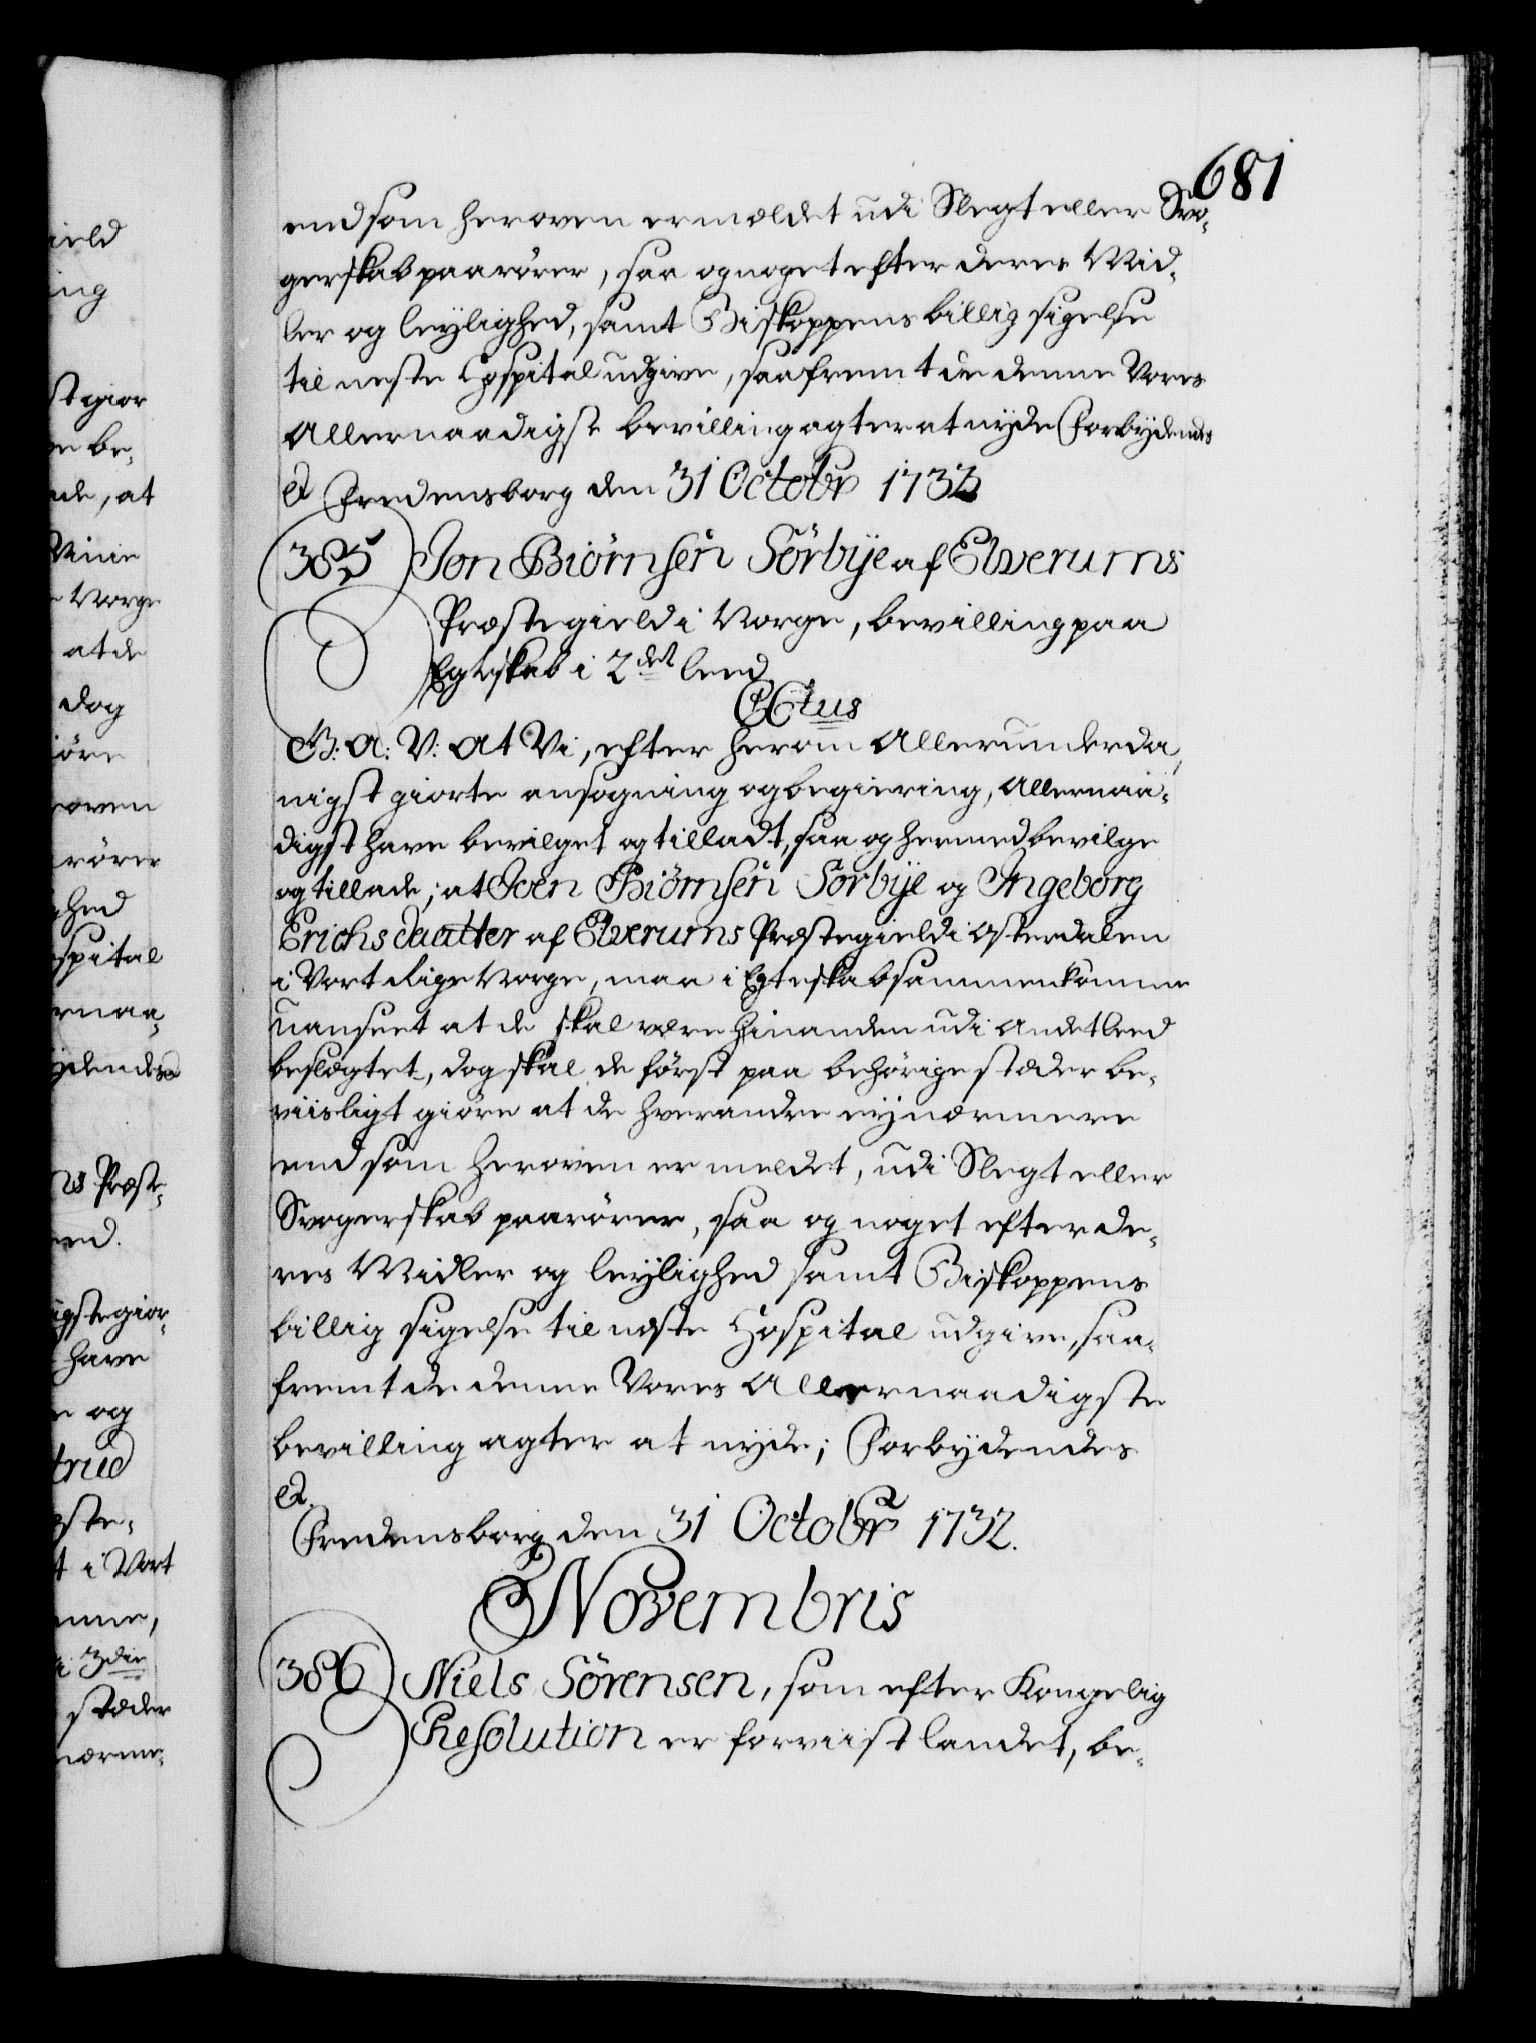 681
end som heroven ermældet udi Slegt eller Svo-
gerskab paarörer, saa og noget efter deres Mid-
ler og leylighed, samt Biskoppens billig sigelse
til neste Hospital udgive, saafremt de denne Vores
Allernaadigst bevilling agter at nyde Forbydendes
&. Fredensborg den 31 Octobr 1732
385 Jon Biörnsen Sörbye af Elverums
Præstegield i Norge, bevilling paa
Egteskab i 2det leed
CCtus
G: A: V: At Vi, efter herom Allerunderda-
nigst giorte ansögning og begiering, Allernaa-
digst have bevilget og tilladt, saa og hermed bevilge
og tillade; at Joen Biörnsen Sörbye og Ingeborg
Erichsdautter af Elverums Præstegield i Österdalen
i Vort Rige Norge, maa i Egteskab sammenkomme
Uanseet at de skal være hinanden udi Andet leed
beslægtet, dog skal de først paa behörige stæder be-
viisligt giöre at de hverandre ey nærmere
end som heroven ermeldet, udi Slegt eller
Svogerskab paarörer, saa og noget efter de-
res Midler og leylighed samt Biskoppens
billig sigelse til næste Hospital udgive, saa-
fremt de denne Vores Allernaadigste
bevilling agter at nyde; Forbydendes
&.
Fredensborg den 31 Octobr 1732.
Novembris
386 Niels Sörensen, som efter Kongelig
Resolution er forviist landet, be-
ield
ing
st gior
be-
ade, at
Norge
at de
dog
iöre
roven
rörer
ghed
ospital
ernaa-
ydendes
Præste-
eed.
igste gior-
have
og
trud
æste-
t i Vort
omme,
i 3die
stæder
nærme-